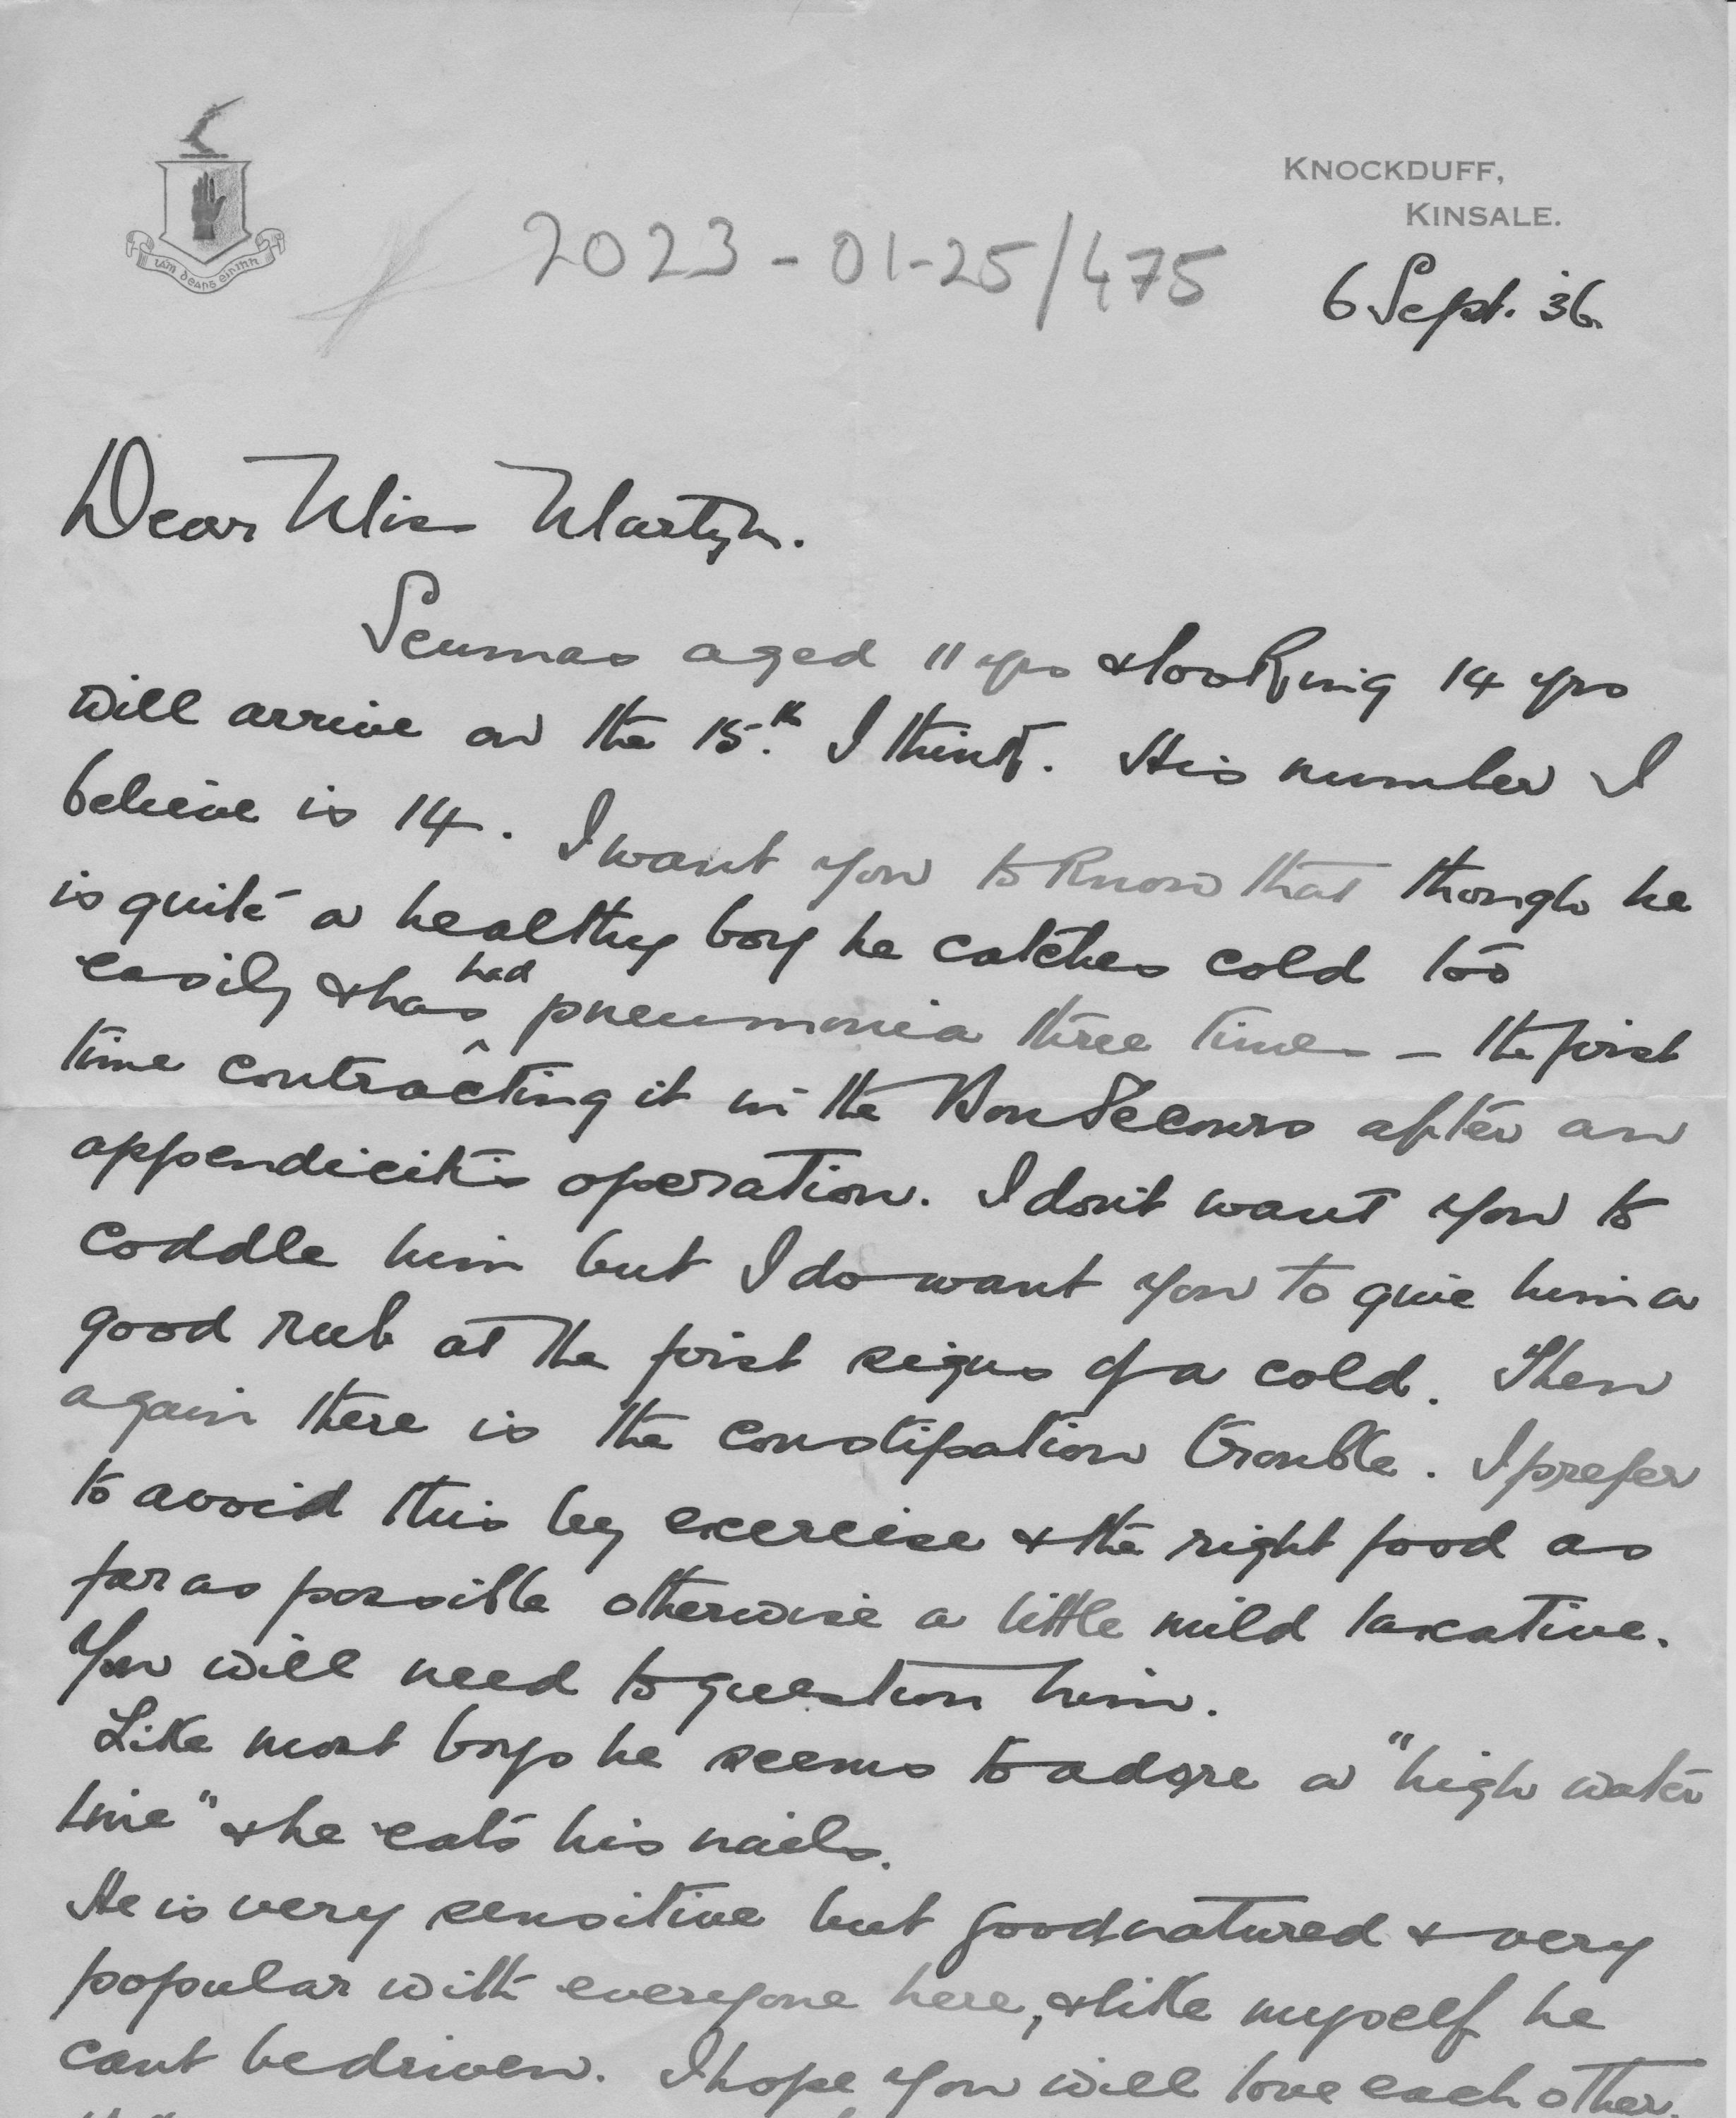 KNOCKDUFF,
KINSALE.
2023-01-25/475
6 Sept. '36.
Dear Miss Martyn.
Seumas aged 11 yrs & looking 14 yrs
will arrive on the 15th. I think. His number I
believe is 14. I want you to know that though he
is quite a healthy boy he catches cold too
easily & has had pneumonia three times – the first
time contracting it in the Bon Secours after an
appendicitis operation. I don't want you to
coddle him but I do want you to give him a
good rub at the first signs of a cold. Then
again there is the constipation trouble. I prefer
to avoid this by exercise & the right food as
far as possible otherwise a little mild laxative.
You will need to question him.
Like most boys he seems to adore a "high water
line" & he eats his nails.
He is very sensitive but goodnatured & very
popular with everyone here, & like myself he
cant be driven. I hope you will love each other.